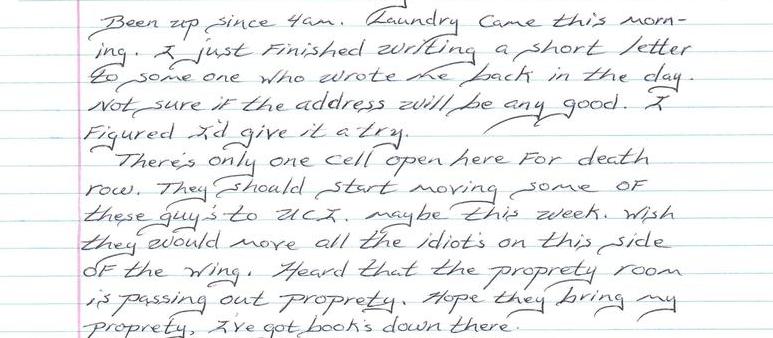 Been up since 4am. Laundry came this morn-
ing. I just finished writing a short letter
to some one who wrote me back in the day.
Not sure if the address will be any good. I
Figured I'd give it a try.
There's only one cell open here For death
row. They should start moving some OF
these guy's to UCI. maybe this week. Wish
they would move all the idiot's on this side
OF the wing. Heard that the proprety room
is passing out proprety. Hope they bring my
proprety, I've got book's down there.